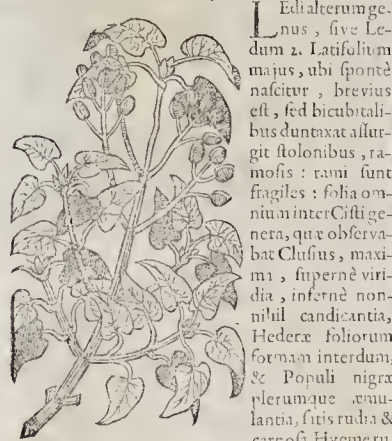 LEdi alterum ge-
nus, ſive Le-
dum 2. Latifolium
majus, ubi ſpontè
naſcitur, brevius
eſt, ſed bicubitali-
bus duntaxat aſſur-
git ſtolonibus, ra-
moſis: rami ſunt
fragiles: folia om-
nium inter Ciſti ge-
nera, quæ obſerva-
bat Cluſius, maxi-
ma, ſupernè viri-
dia, infernè non-
nihil candicantia,
Hederæ foliorum
formam interdum,
& Populi nigræ
plerumque æmu-
lantia, ſatis rudia &
carnoſa Hyeme ru